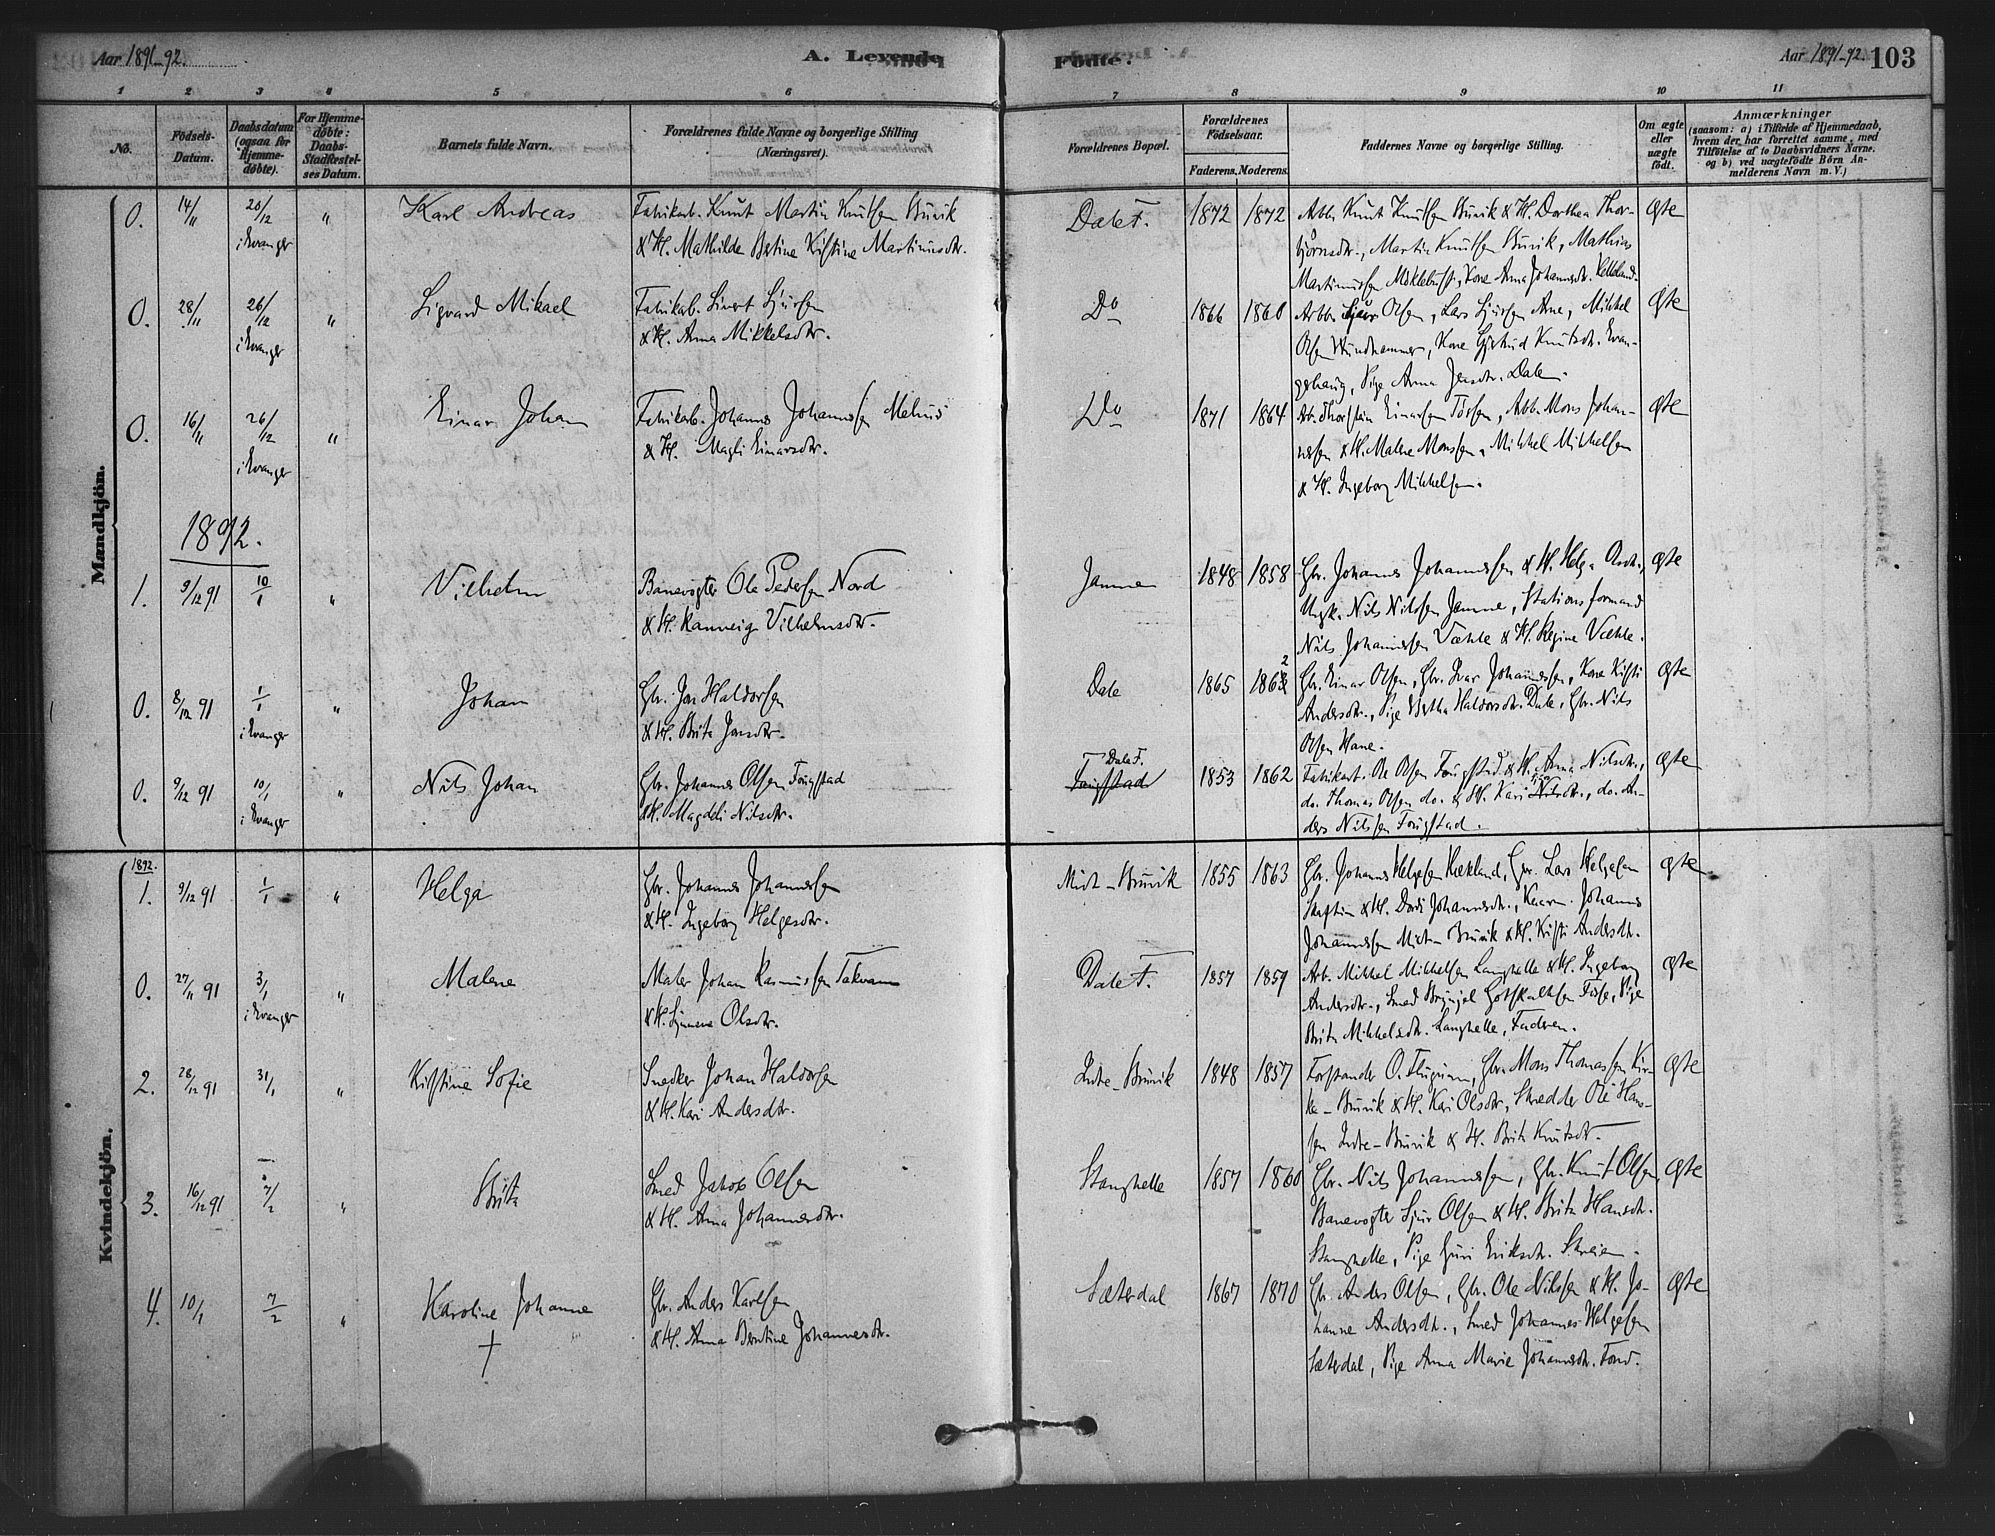 Aar 1891-92.
A. Levende
Fødte.
Aar 1891-92. 103
1 2 3 4 5 6 7 8 9 10 11
No.
Fødsels-Datum.
Daabsdatum (ogsaa for Hjemmedøbte).
For Hjemmedøbte: Daabs-Stadfæstelses Datum.
Barnets fulde Navn.
Forældrenes fulde Navne og borgerlige Stilling (Næringsvei).
Forældrenes Bopæl.
Forældrenes Fødselsaar.
Faderens. Moderens.
Faddernes Navne og borgerlige Stilling.
Om ægte eller uægte født.
Anmærkninger
(saasom: a) i Tilfælde af Hjemmedaab, hvem der har forrettet samme, med Tilføielse af to Daabsvidners Navne. og b) ved uægtefødte Børn Anmelderens Navn m. V.)
Mandkjøn.
0. 14/11 26/12 i Evanger " Karl Andreas
Fabrikarb. Knut Martin Knutsen Bruvik
& H. Mathilde Bertine Kristine Martinusdtr.
Dale F. 1872 1872
Arb. Knut Knutsen Bruvik & H. Dorthea Thor-
bjørnsdtr., Martin Knutsen Bruvik, Mathias
Martinussen Møklebust, Kone Anna Johannesdtr.
Øgte
0. 28/11 26/12 i Evanger " Sigvard Mikael
Fabrikab. Sivert Sjursen
& H. Anna Mikkelsdtr.
Do 1866 1860
Arbb. Sjur Olsen, Lars Sjursen Arne, Mikkel
Olsen Hundhammer, Kone Gjertrud Knutsdtr. Evan-
gerhaug, Pige Anna Jensdtr. Dale.
Øgte
0. 16/11 26/12 i Evanger " Einar Johan
Fabrikarb. Johannes Johannessen Melhus
& H. Magli Einarsdtr.
Do 1871 1864
Arb. Thorstein Einarsen Tøssen, Arb. Mons Johan-
nessen & H. Malene Monssen, Mikkel Mikkelsen
& H. Ingeborg Mikkelsen.
Øgte
1892.
1. 9/12 91 10/1 " Vilhelm
Banevogter Ole Pedersen Nord
& H. Ranneig Vilhelmsdtr.
Jamne 1848 1858
Gbr. Johannes Johannessen & H. Helga Olsdtr.,
Ungk. Nils Nilssen Jamne, Stationsformand
Nils Johannessen Væhle & H. Regine Væhle.
Øgte
0. 8/12 91 1/1 i Evanger " Johan
Gbr. Jon Haldorsen
& H. Brita Jonsdtr.
Dale 1865 1862
Gbr. Einar Olsen, Gbr. Ivar Johannessen, Kone Kristi
Andersdtr., Pige Bertha Haldorsdtr. Dale, Gbr. Nils
Olsen Hane.
Øgte
0. 9/12 91 10/1 i Evanger " Nils Johan
Gbr. Johannes Olsen Fougstad
& H. Magdeli Nilsdtr.
Dale F.
Fougstad 1853 1862
Fabrikarb. Ole Olsen Fougstad & H. Anna Nilsdtr.,
do. Thomas Olsen do. & H. Kari Nilsdtr., do. An-
ders Nilssen Fougstad.
Øgte
Kvindekjøn.
1892.
1. 9/12 91 1/1 " Helga
Gbr. Johannes Johannessen
& H. Ingeborg Helgesdtr.
Midt-Bruvik 1855 1863
Gbr. Johannes Helgesen Rækland, Gbr. Lars Helgesen
Skaftun & H. Dordi Johannesdtr., Kaarm. Johannes
Johannessen Midt-Bruvik & H. Kristi Andersdtr.
Øgte
0. 27/11 91 3/1 i Evanger " Malene
Maler Johan Rasmussen Takvam
& H. Synneve Olsdtr.
Dale F. 1857 1859
Arb. Mikkel Mikkelsen Langhelle & H. Ingeborg
Andersdtr., Smed Brynjel Gotskalksen Fosse, Pige
Brita Mikkelsdtr. Langhelle, Faderen.
Øgte
2. 28/12 91 31/1 " Kristine Sofie
Snedker Johan Haldorsen
& H. Kari Andersdtr.
Indre-Bruvik 1848 1857
Forstander O. Flugum, Gbr. Mons Thomassen Kir-
ke-Bruvik & H. Kari Olsdtr, Skredder Ole Hans-
sen Indre-Bruvik & H. Brita Knutsdtr.
Øgte
3. 16/12 91 7/2 " Brita
Smed Jakob Olsen
& H. Anna Johannesdtr.
Stanghelle 1857 1860
Gbr. Nils Johannessen, Gbr. Knut Olsen,
Banevogter Sjur Olsen & H. Brita Hansdtr.
Stanghelle, Pige Guri Eriksdtr. Skreien.
Øgte
4. 10/1 7/2 " Karoline Johanne
†
Gbr. Anders Karlsen
& H. Anna Berntine Johannesdtr.
Sæterdal 1867 1870
Gbr. Anders Olsen, Gbr. Ole Nilssen & H. Jo-
hanne Andersdtr., Smed Johannes Helgesen
Sæterdal, Pige Anna Marie Johannesdtr. Toni.
Øgte